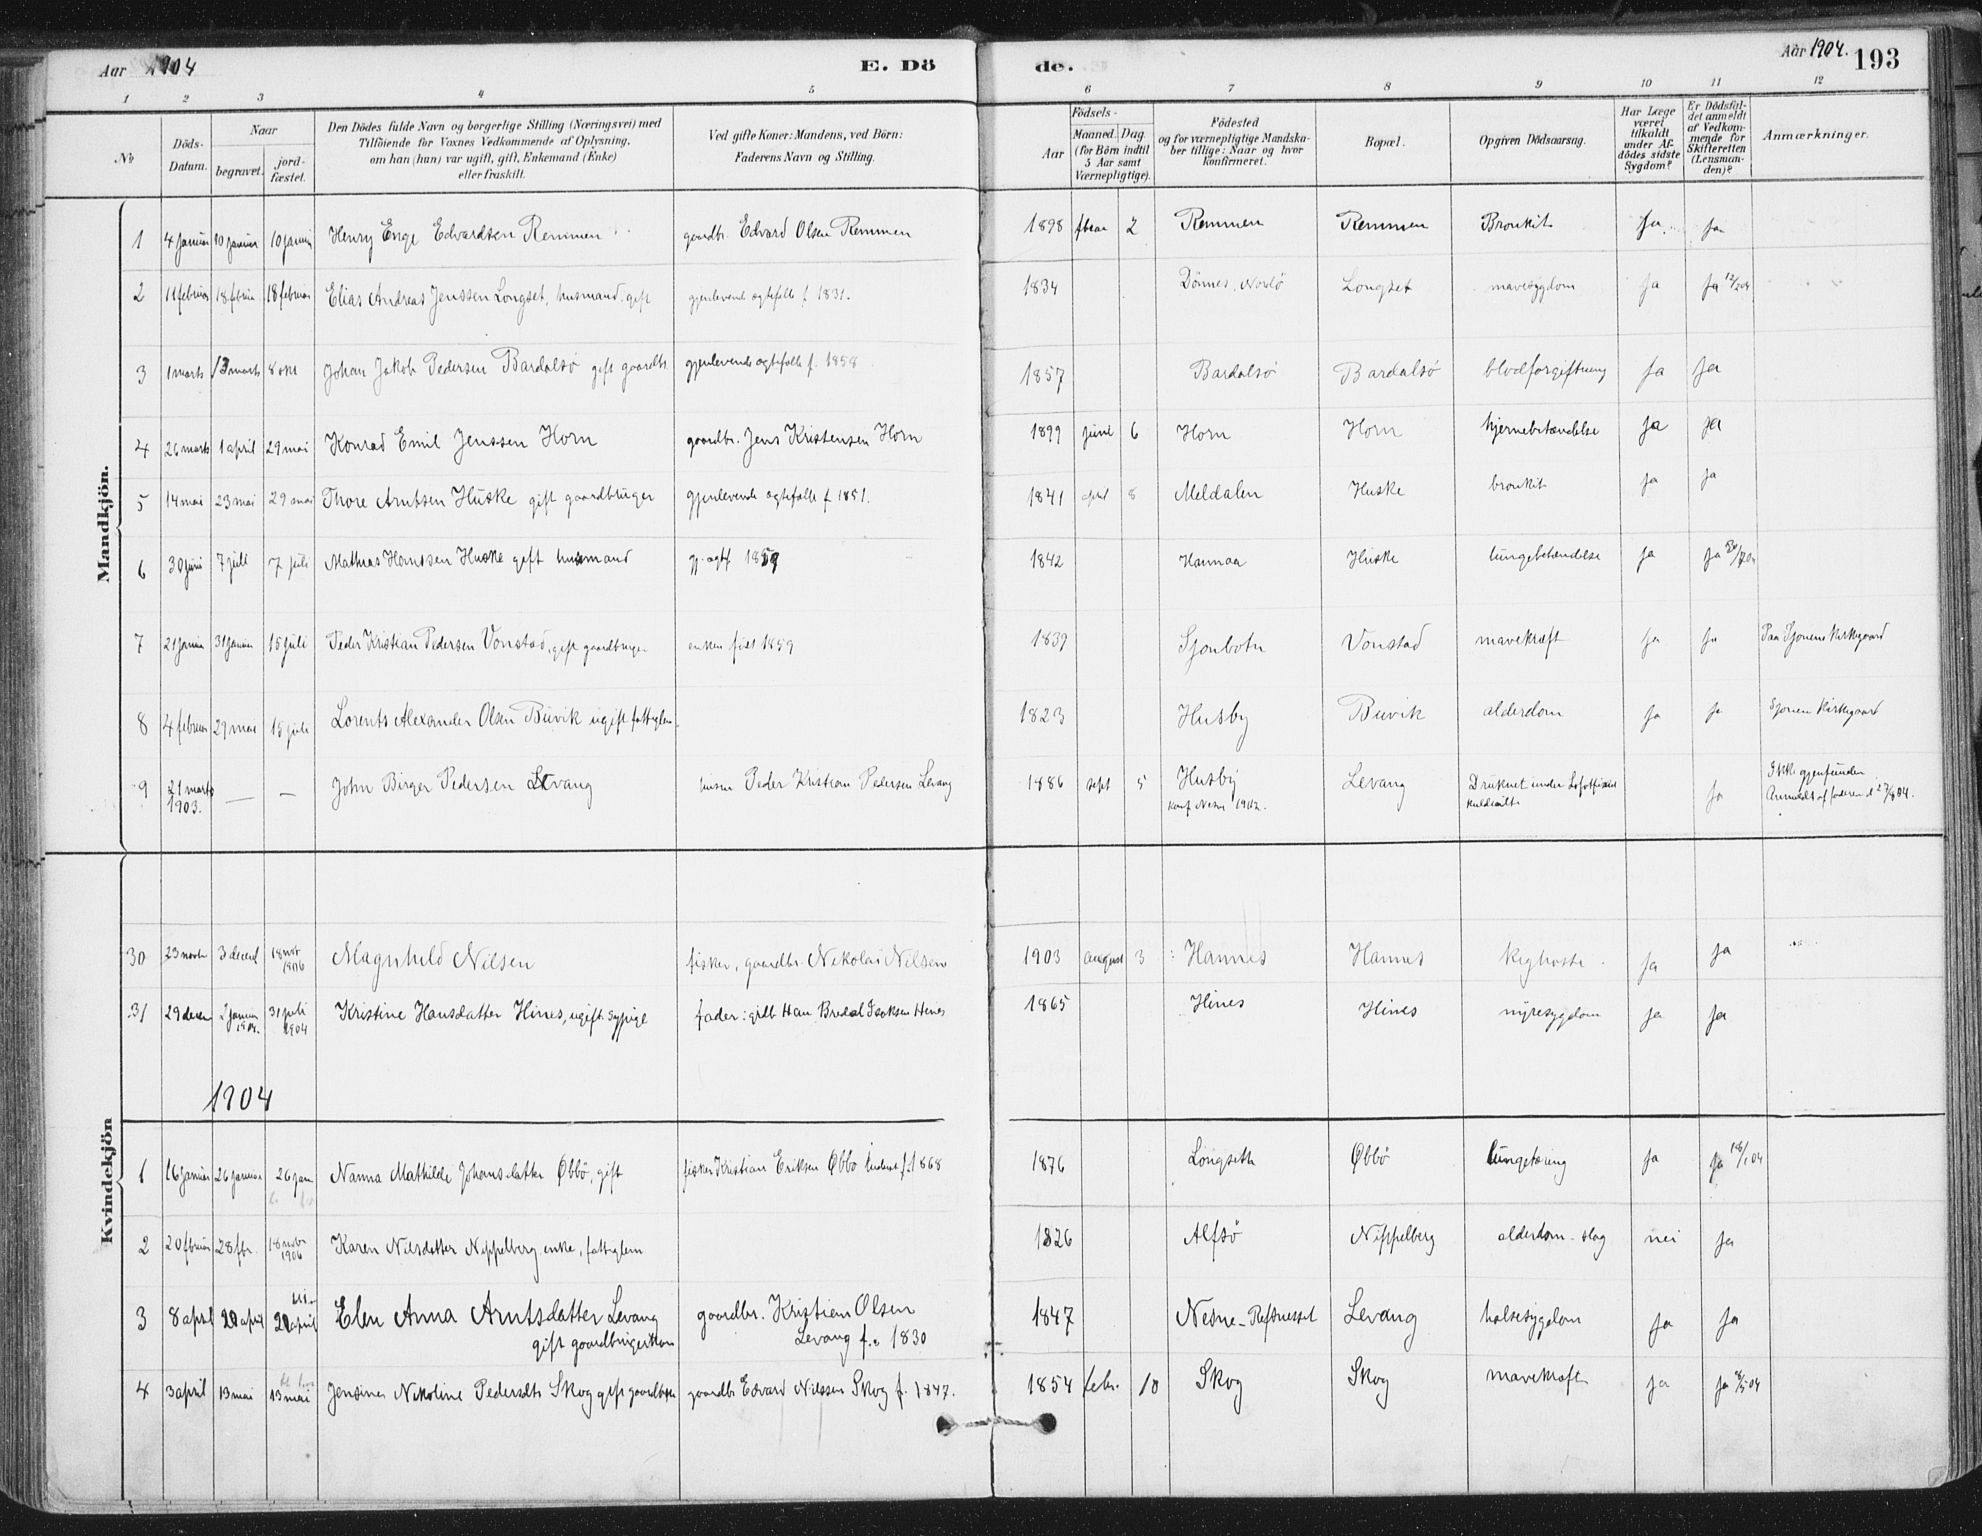 Aar 1904 E. Döde. Aar 1904. 193
1 2 3 4 5 6 7 8 9 10 11 12
No
Döds-Datum.
Naar
begravet.
jord-fæstet.
Den Dödes fulde Navn og borgerlige Stilling (Næringsvei) med
Tilföiende for Voxnes Vedkommende af Oplysning,
om han (hun) var ugift, gift, Enkemand (Enke)
eller fraskilt.
Ved gifte Koner: Mandens, ved Börn:
Faderens Navn og Stilling.
Födsels-
Aar
Maaned. Dag.
(for Börn indtil
5 Aar samt
Værnepligtige).
Födested
og for værnepligtige Mandska-
ber tillige: Naar og hvor
konfirmeret.
Bopæl.
Opgiven Dödsaarsag.
Har Læge
været
tilkaldt
under Af-
dödes sidste
Sygdom?
Er Dödsfal-
det anmeldt
af Vedkom-
mende for
Skifteretten
(Lensman-
den)?
Anmærkninger.
Mandkjön.
1 4 januar 10 januar 10 januar Henry Enge Edvardsen Remmen gaardbr. Edvard Olsen Remmen 1898 2 Remmen Remmen Bronkit ja ja
2 11 februar 18 februar 18 februar Elias Andreas Jenssen Longset, husmand, gift gjenlevende ægtefælle f. 1831. 1834 Dönnes, Nordö Longset mavesygdom ja ja 12/2 04
3 1 marts 13 marts 8 okt Johan Jakob Pedersen Bardalsö gift gaardbr. gjenlevende ægtefælle f. 1858. 1857 Bardalsö Bardalsö blodforgiftning ja ja
4 26 marts 1 april 29 mai Konrad Emil Jenssen Horn gaardbr. Jens Kristensen Horn 1899 juni 6 Horn Horn hjernebetændelse ja ja
5 14 mai 23 mai 29 mai Thore Arntsen Huske gift gaardbruger gjenlevende ægtefælle f. 1851. 1841 april 8 Meldalen Huske bronkit ja ja
6 30 juni 7 juli 7 juli Mathias Hansen Huske gift husmand gj. ægtf. 1842 Huske lungebetændelse ja ja
7 21 januar 31 januar 15 juli Peder Kristian Pedersen Vonstad, gift gaardbruger enken född 1859 1839 Sjonbotn Vonstad mavekræft ja ja Paa Sjonens kirkegaard
8 4 februar 29 mai 15 juli Lorents Alexander Olsen Buvik ugift fattiglem. 1823 Husby Buvik alderdom ja ja Sjonens kirkegaard
9 21 marts — — John Birger Pedersen Levang Peder Kristian Pedersen Levang 1886 sept 5 Husby Levang Druknet under Lofotfisket ja Ikke gjenfunden
1903. konf. Nesne 1902. Anmeldt af faderen d 27/8 04.
Kvindekjön
30 23 novbr 3 decebr 18 novbr Magnhild Nilsen fisker, gaardbr. Nikolai Nilsen 1903 august 3 Hannes Hannes kighoste ja ja
1906
31 29 decem 2 januar 31 juli Kristine Hansdatter Hines, ugift sypige fader: grdb. Han Bredal Isaksen Hines 1865 Hines Hines nyresygdom ja ja
1904. 1904
1904
1 16 januar 26 januar 26 jan Nanna Mathilde Johansdatter Øbbö, gift fisker Kristian Eriksen Øbbö f. 1868 1876 Longseth Øbbö lungetæring ja ja 18/1 04
2 20 februar 28 fbr. 18 novbr Karen Nilsdatter Nippelberg enke, fattiglem 1826 Alfsö Nippelberg alderdom - slag nei ja
1906
3 8 april 20 april 20 april Elen Anna Arntsdatter Levang gaardbr. Kristian Olsen 1847 Nesne - Refsnesset Levang halsesygdom ja ja
gift gaardbrugerkone Levang f. 1830
4 3 april 13 mai 13 mai Jensine Nikoline Pedersdtr Skog gift gaardbr. gaardbr. Edvard Nilssen Skog f. 1847. 1854 febr. 10 Skog Skog mavekræft ja ja